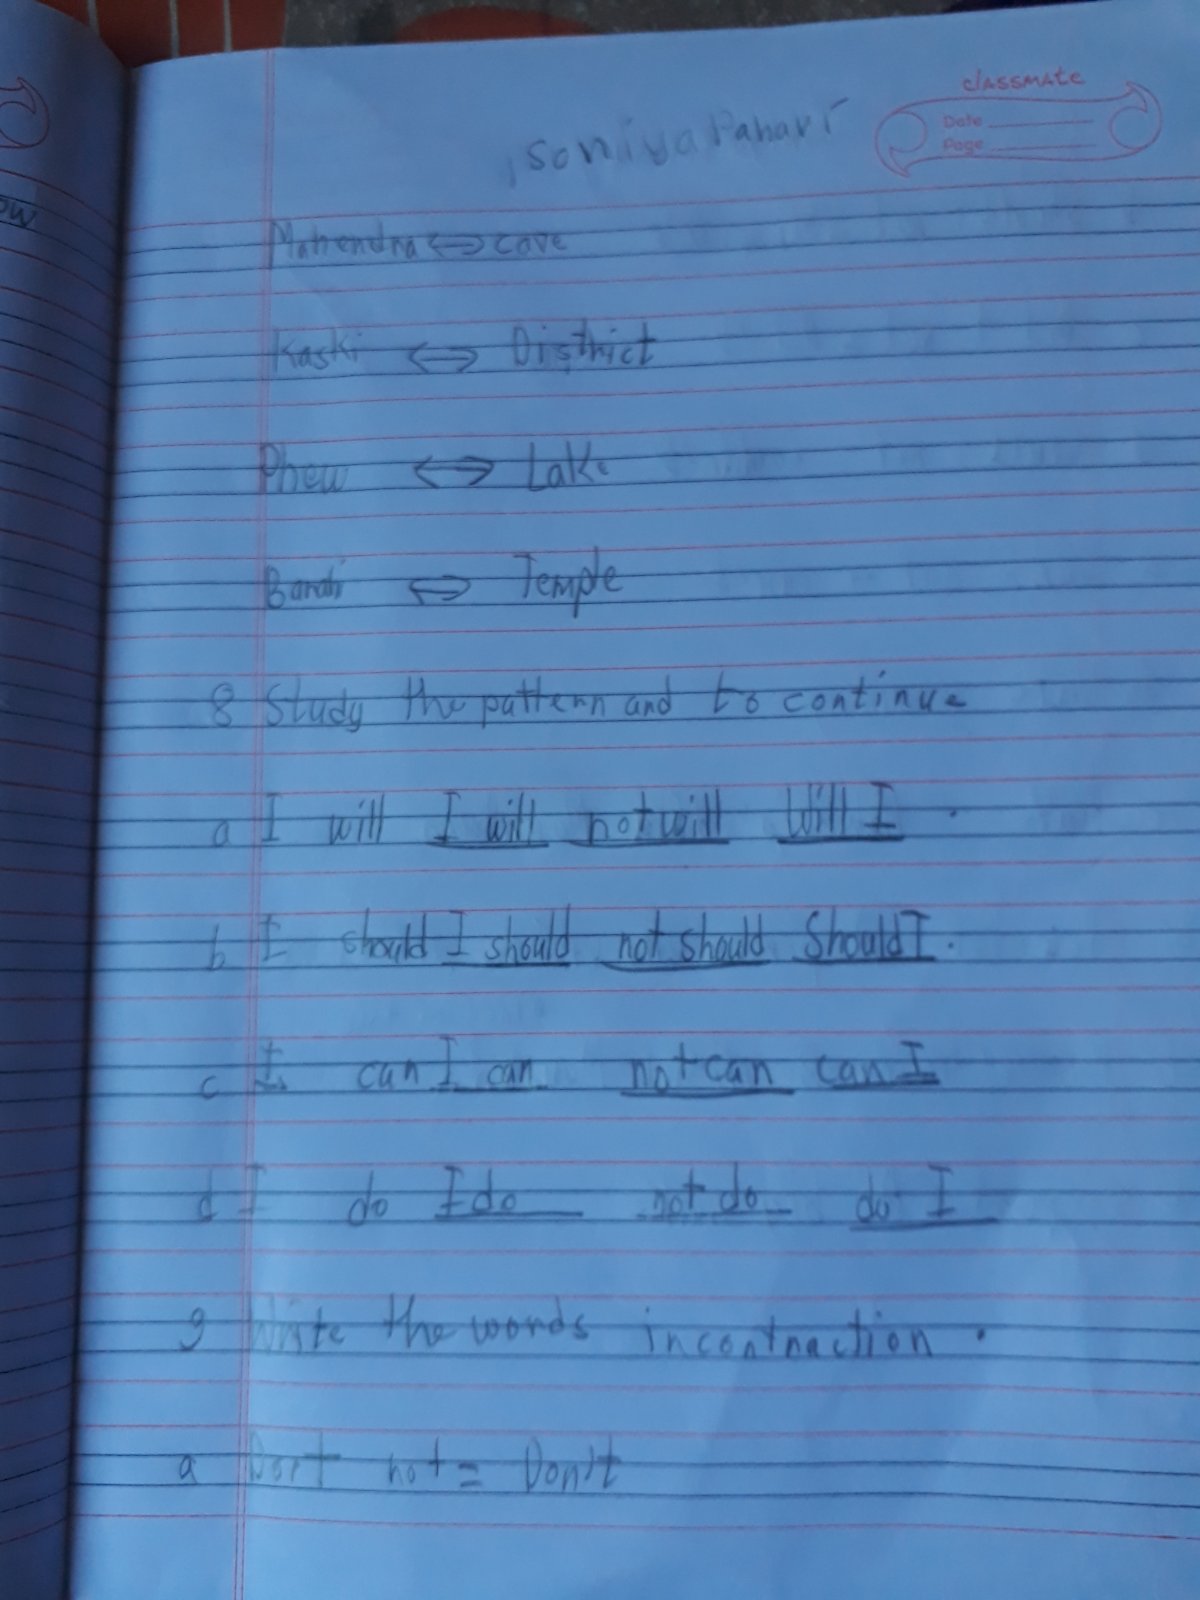 classmate
Date
Page
Soniya Pahari
ow
Mahendra ⇔ cave
Kaski ⇔ District
Phew ⇔ Lake
Barahi ⇔ Temple
8 Study the pattern and to continue
a I will I will not will Will I .
b I should I should not should Should I .
c I can I can not can can I
d I do I do not do do I
9 Write the words in contraction .
a not = Don't